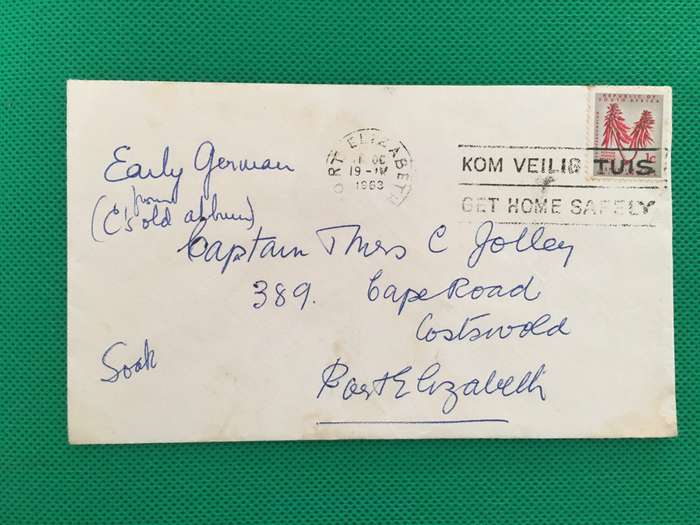 Early German
from
(C's old album)
Captain Thos C Jolley
389. Cape Road
Cotswold
Port Elizabeth
Soak
PORT ELIZABETH
19-IV
1963
KOM VEILIG TUIS
GET HOME SAFELY
REPUBLIC OF
SOUTH AFRICA
1c